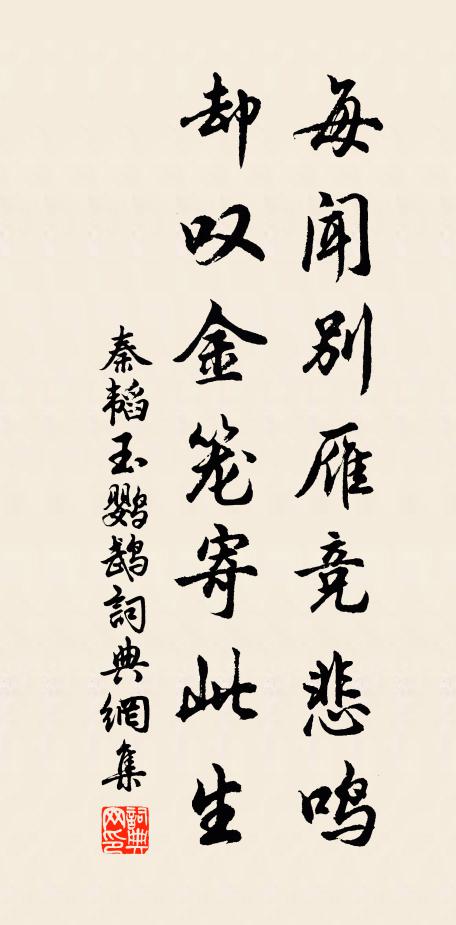 每闻别雁竞悲鸣
却叹金笼寄此生
秦韬玉鹦鹉詞典網集
詞典网印